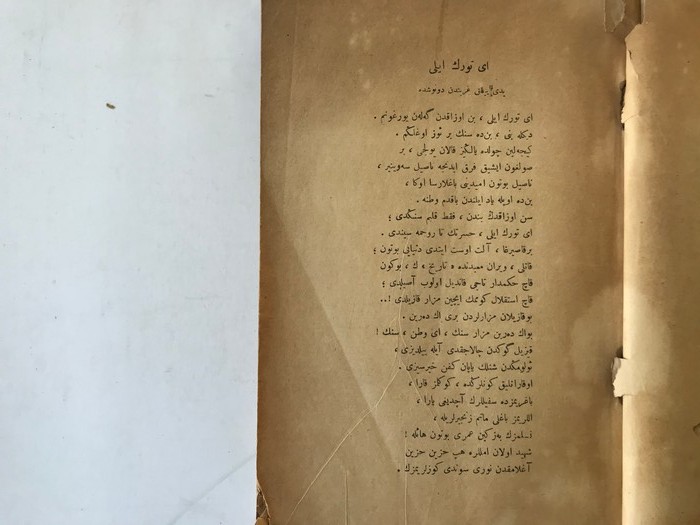 ای تورك ایلی
یدی آیلق غربتدن دونوشده
ای تورك ایلی ، بن اوزاقدن گه‌لن یورغونم .
دیكله بنی ، بن‌ده سنك بر ئوز اوغلكم .
كیجه‌لین چولده یالكز قالان یولجی ، بر
صولغون ایشیق فرق ایدنجه ناصیل سه‌وینیر ،
ناصیل بوتون امیدینی باغلارسا اوكا ،
بن‌ده اویله یاد ایلندن باقدم وطنه .
سن اوزاقدڭ بندن ، فقط قلبم سنكدی ؛
ای تورك ایلی ، حسرتك تا روحمه سیندی .
بر قاصیرغا ، آلت اوست ایتدی دنیایی بوتون ؛
قانلی ، ویران معبدنده « تاریخ » ك ، بوكون
قاچ حكمدار تاجی قاندیل اولوب آصیلدی ؛
قاچ استقلال كوممك ایچین مزار قازیلدی !..
بو قازیلان مزارلردن بری اك ده‌رین .
بو اك ده‌رین مزار سنك ، ای وطن ، سنك !
قیزیل كوكدن چالاجقدی آیله ییلدیزی ،
ئولومكدن شنلك یاپان كفن خیرسیزی .
او قارانلیق كونلركده ، كوكلر قارا ،
باغریمزده سفیللرك آچدیغی یارا ،
اللریمز باغلی ماتم زنجیرلریله ،
بوتون هائله !
شهید اولان امللره هپ حزین حزین
آغلامقدن نوری سوندی كوزلریمزك .